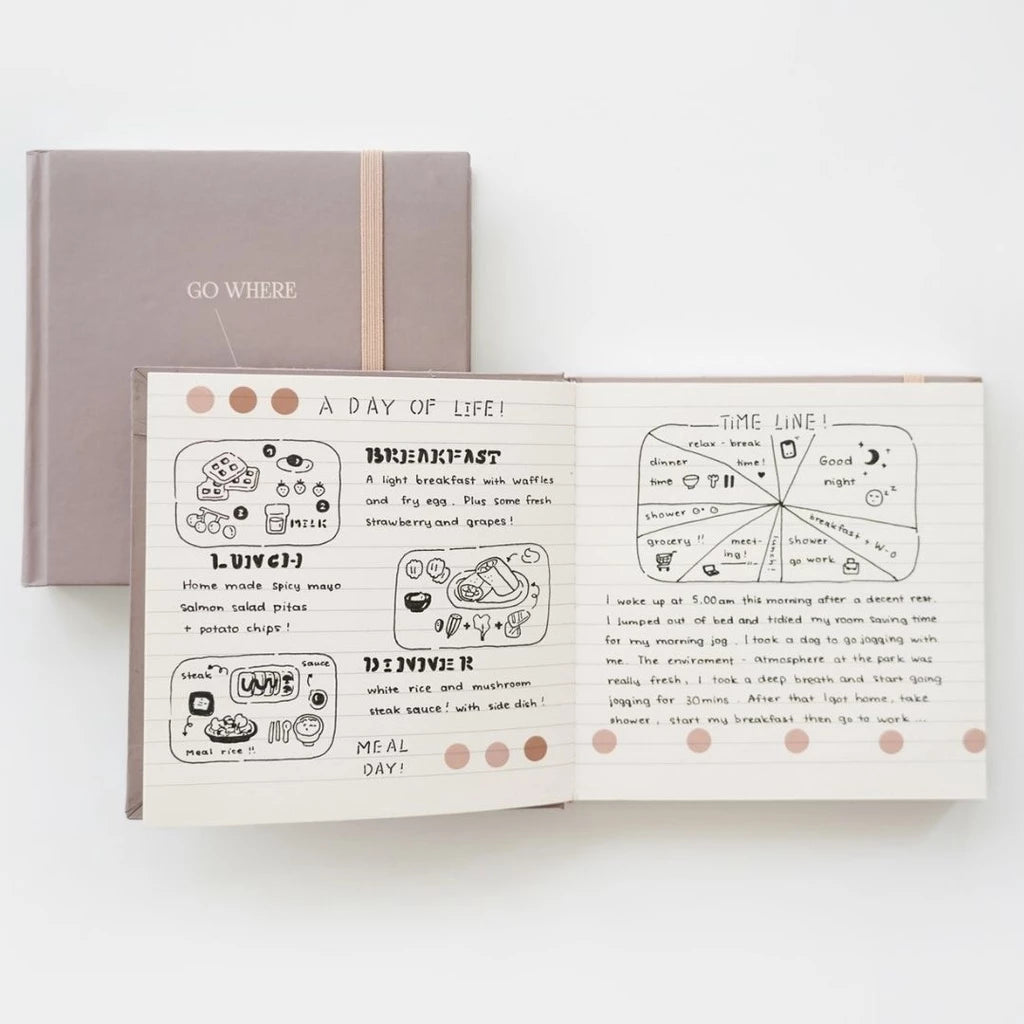 GO WHERE
A DAY OF LIFE!
BREAKFAST
A light breakfast with waffles
and fry egg. Plus some fresh
strawberry and grapes!
1
2
3
MILK
LUNCH
Home made spicy mayo
salmon salad pitas
+ potato chips!
+ +
DINNER
white rice and mushroom
steak sauce! with side dish!
steak
sauce
Meal rice!!
MEAL
DAY!
TIME LINE!
relax - break
time!
dinner
time
Good
night
z z
shower
grocery!!
meet-
ing!
lunch!
shower
go work
breakfast + W.O
I woke up at 5.00am this morning after a decent rest.
I Jumped out of bed and tidied my room saving time
for my morning jog. I took a dog to go jogging with
me. The enviroment - atmosphere at the park was
really fresh, I took a deep breath and start going
jogging for 30mins. After that I got home, take
shower, start my breakfast then go to work ...